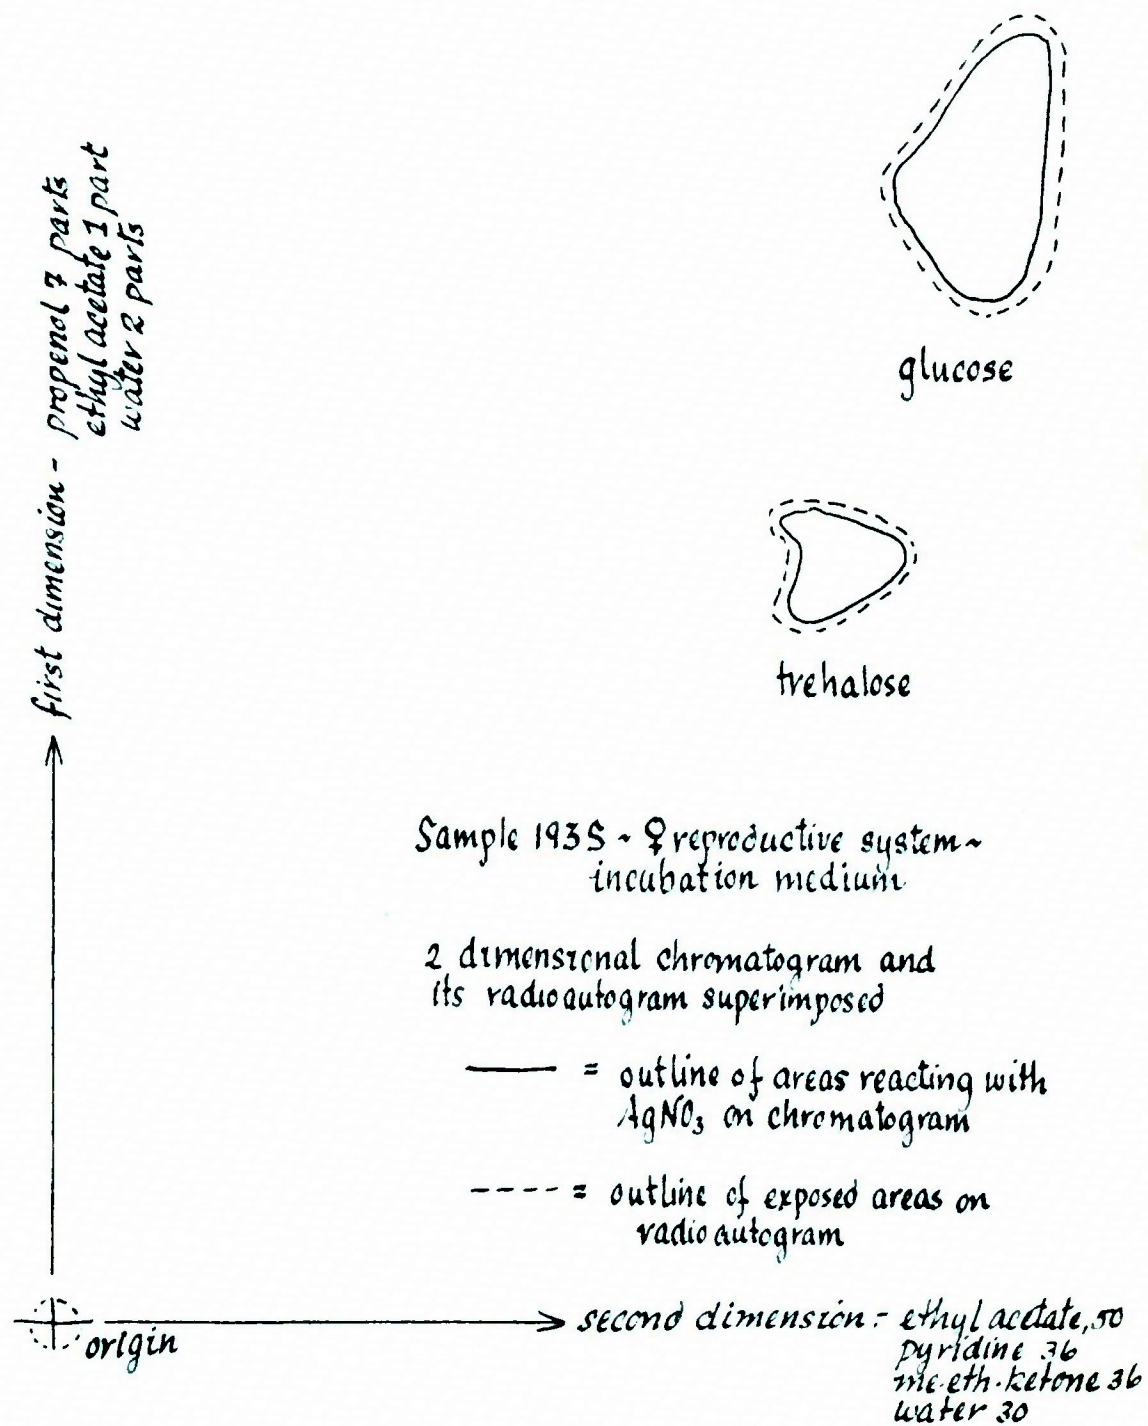 first dimension - propenol 7 parts
ethyl acetate 1 part
water 2 parts
glucose
trehalose
Sample 193S ~ ♀ reproductive system ~
incubation medium
2 dimensional chromatogram and
its radioautogram superimposed
= outline of areas reacting with
AgNO₃ on chromatogram
= outline of exposed areas on
radioautogram
origin
second dimension - ethyl acetate, 50
pyridine 36
me-eth-ketone 36
water 30